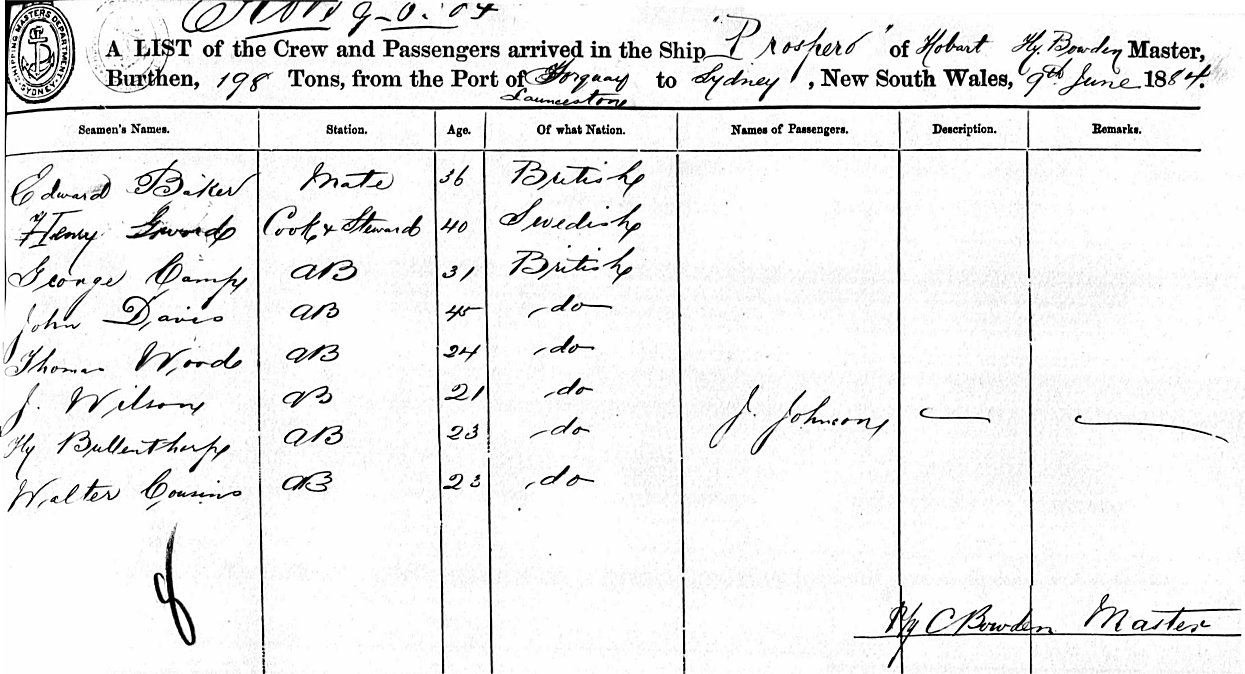 9.6.84
SHIPPING MASTERS DEPARTMENT SYDNEY
A LIST of the Crew and Passengers arrived in the Ship "Prospero" of Hobart Hy. Bowden Master,
Burthen, 198 Tons, from the Port of Torquay to Sydney, New South Wales, 9th June 1884.
Launceston
Seamen's Names. Station. Age. Of what Nation. Names of Passengers. Description. Remarks.
Edward Baker Mate 36 British
Henry Cook & Steward 40 Swedish
George Camp AB 31 British
John Davis AB 45 do
Thomas Woods AB 24 do
J. Wilson AB 21 do
J. Johnson
Hy Bullenthorpe AB 23 do
Walter Cousins AB 23 do
8
Hy C Bowden Master